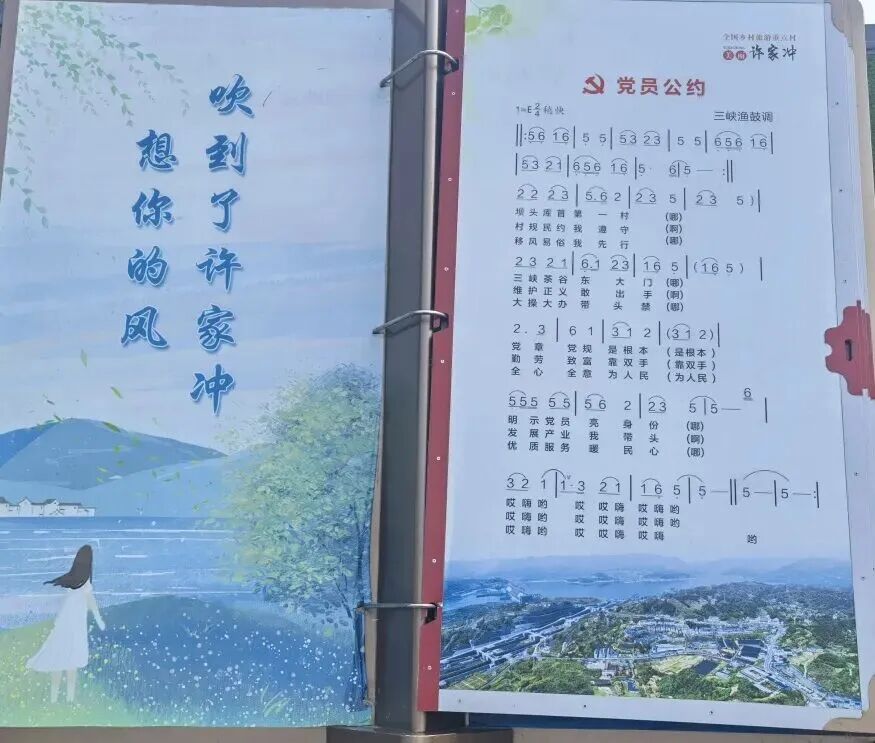 想你的风
吹到了许家冲
全国乡村旅游重点村
美丽 许家冲
党员公约
1=E 2/4 稍快
三峡渔鼓调
‖:56 16|5 5|53 23|5 5|656 16|
|53 21|656 16|5· 6|5 — :‖
22 23|5.6 2|23 5|23 5)|
坝头库首第一村(哪)
村规民约我遵守(啊)
移风易俗我先行(哪)
23 21|61 23|16 5|(16 5)|
三峡茶谷东大门(哪)
维护正义敢出手(啊)
大操大办带头禁(哪)
2.3|6 1|31 2|(31 2)|
党章党规是根本(是根本)
勤劳致富靠双手(靠双手)
全心全意为人民(为人民)
555 55|56 2|23 5|5 — 6|
明示党员亮身份(哪)
发展产业我带头(啊)
优质服务暖民心(哪)
32 1|1·3 21|16 5|5 — ‖5 — |5 — :|
哎嗨哟 哎嗨哎嗨哟
哎嗨哟 哎嗨哎嗨哟
哎嗨哟 哎嗨哎嗨 哟